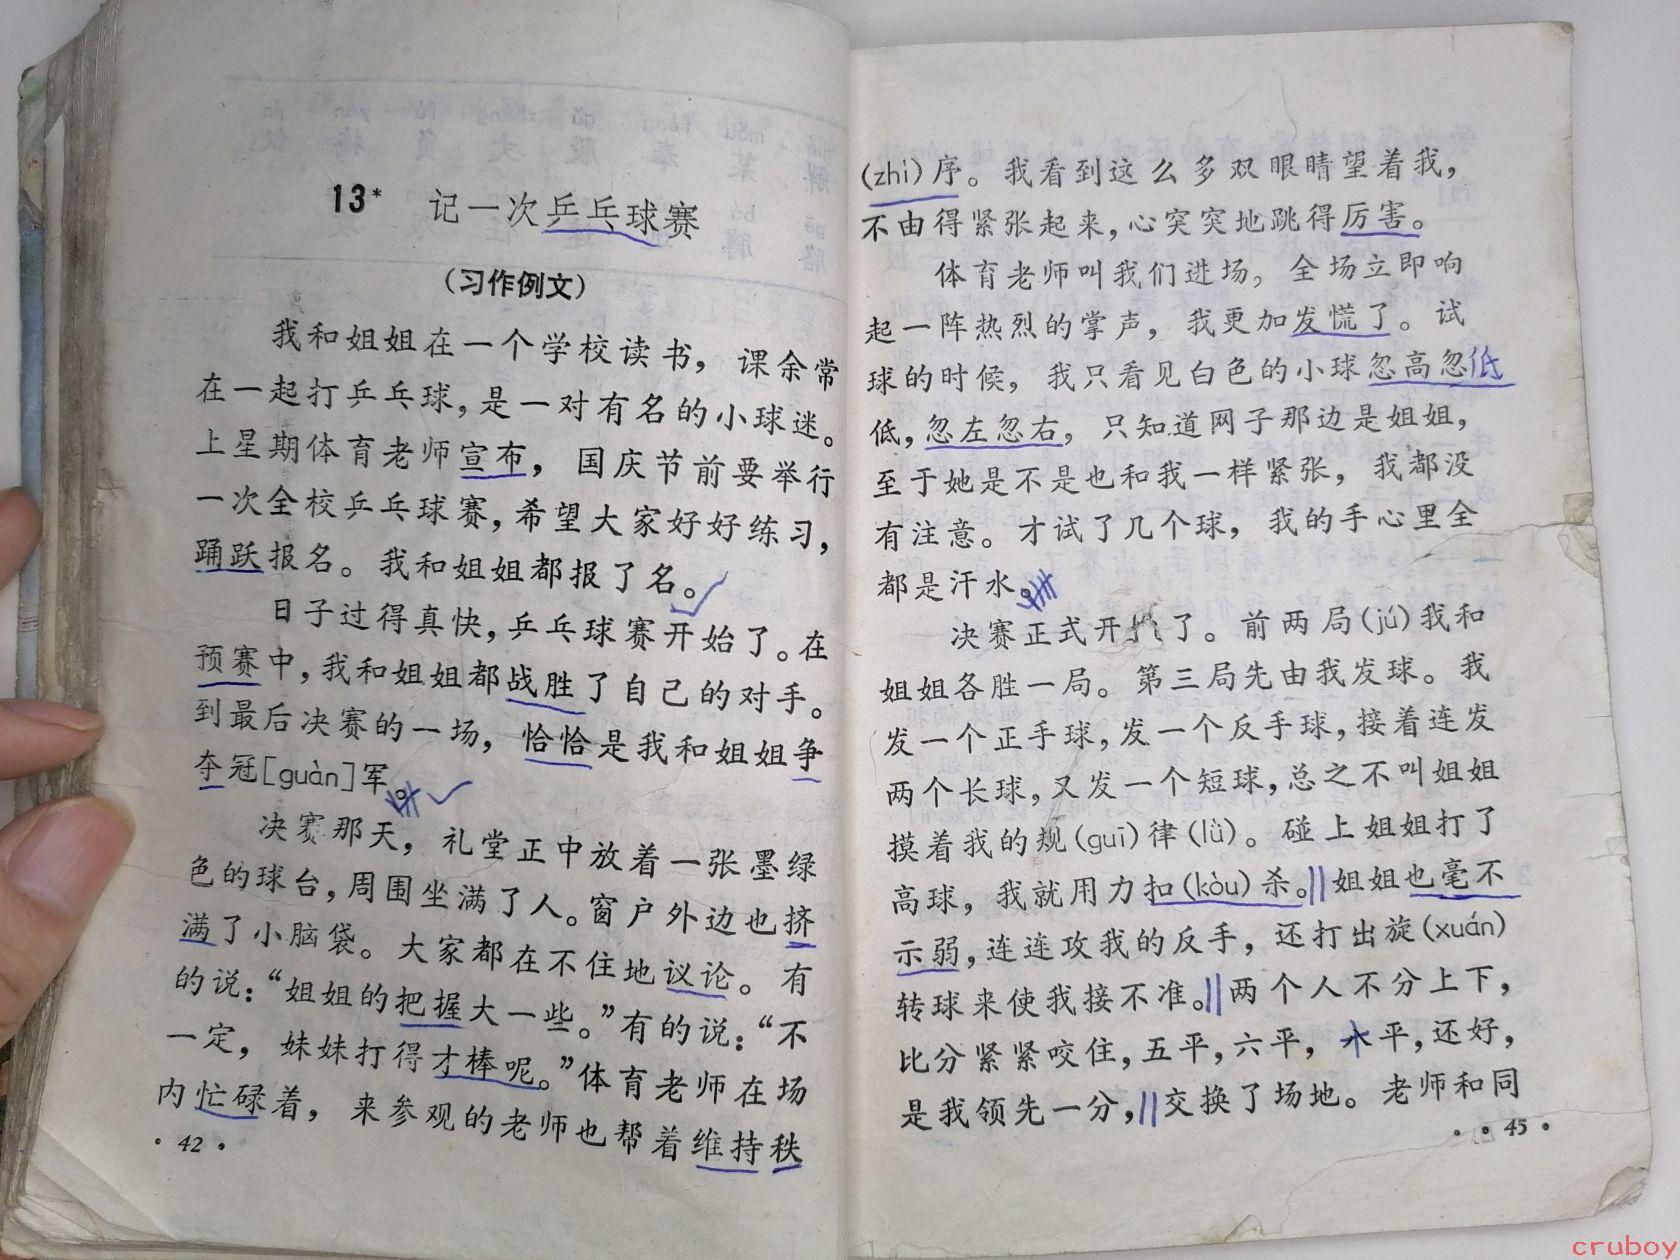 13* 记一次乒乓球赛
(习作例文)
我和姐姐在一个学校读书，课余常
在一起打乒乓球，是一对有名的小球迷。
上星期体育老师宣布，国庆节前要举行
一次全校乒乓球赛，希望大家好好练习，
踊跃报名。我和姐姐都报了名。
日子过得真快，乒乓球赛开始了。在
预赛中，我和姐姐都战胜了自己的对手。
到最后决赛的一场，恰恰是我和姐姐争
夺冠[guàn]军。
决赛那天，礼堂正中放着一张墨绿
色的球台，周围坐满了人。窗户外边也挤
满了小脑袋。大家都在不住地议论。有
的说：“姐姐的把握大一些。”有的说：“不
一定，妹妹打得才棒呢。”体育老师在场
内忙碌着，来参观的老师也帮着维持秩
·42·
(zhì)序。我看到这么多双眼睛望着我，
不由得紧张起来，心突突地跳得厉害。
体育老师叫我们进场。全场立即响
起一阵热烈的掌声，我更加发慌了。试
球的时候，我只看见白色的小球忽高忽低
低，忽左忽右，只知道网子那边是姐姐，
至于她是不是也和我一样紧张，我都没
有注意。才试了几个球，我的手心里全
都是汗水。
决赛正式开了。前两局(jú)我和
姐姐各胜一局。第三局先由我发球。我
发一个正手球，发一个反手球，接着连发
两个长球，又发一个短球，总之不叫姐姐
摸着我的规(guī)律(lǜ)。碰上姐姐打了
高球，我就用力扣(kòu)杀。姐姐也毫不
示弱，连连攻我的反手，还打出旋(xuán)
转球来使我接不准。两个人不分上下，
比分紧紧咬住，五平，六平，平，还好，
是我领先一分，交换了场地。老师和同
·45·
cruboy